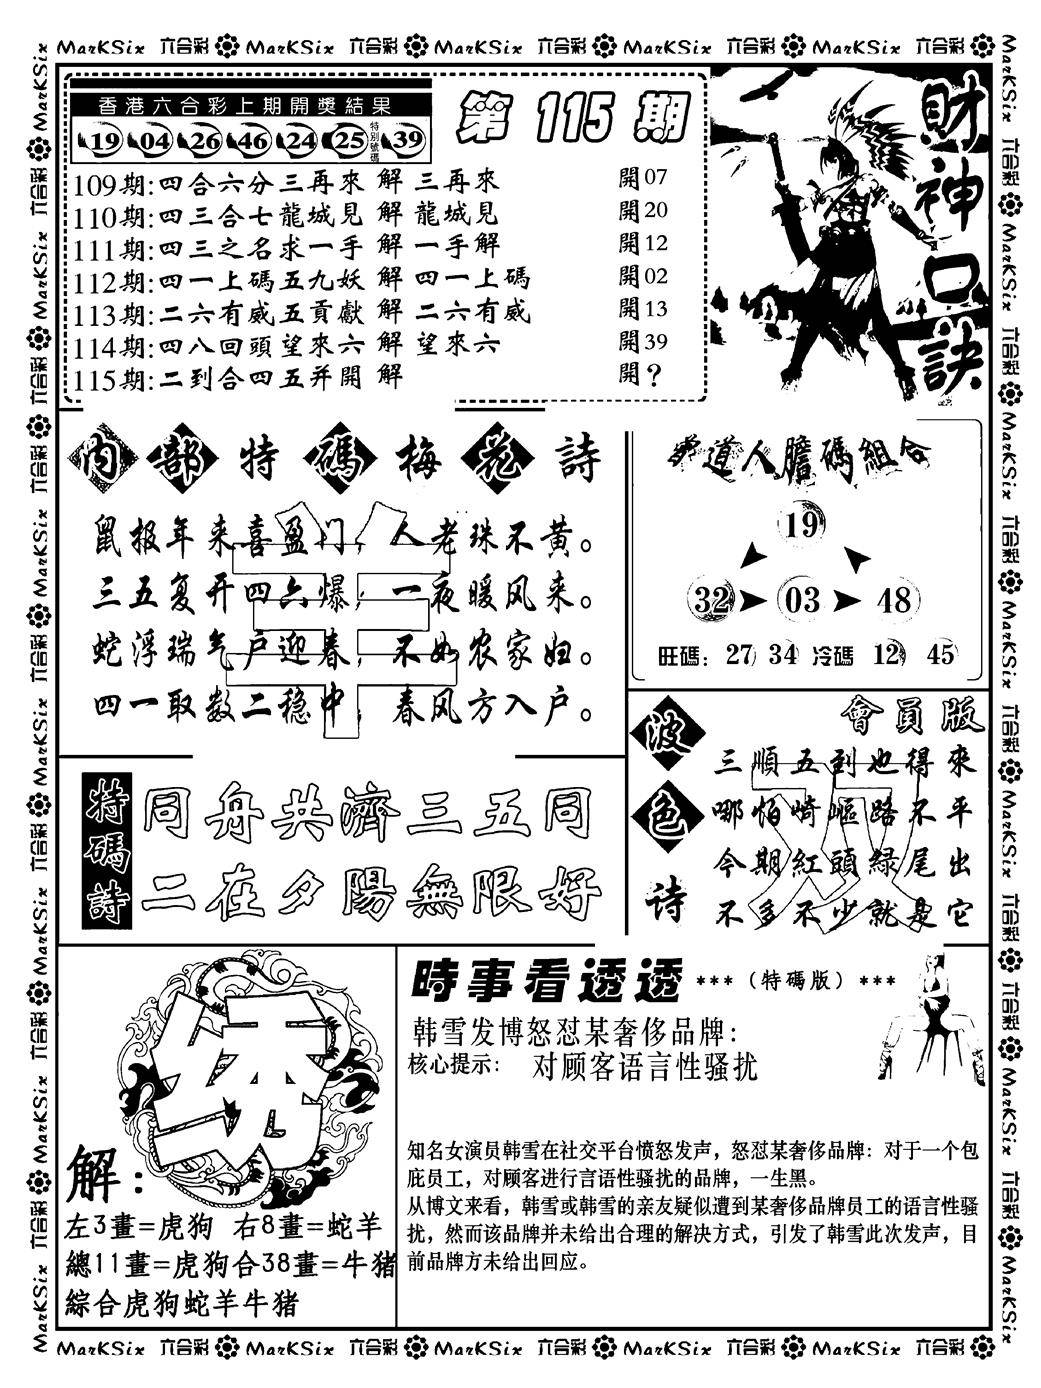 MarKSix 六合彩 MarKSix 六合彩 MarKSix 六合彩 MarKSix 六合彩 MarKSix 六合彩
香港六合彩上期開獎結果
19 04 26 46 24 25 特別號碼 39
第 115 期
財神口訣
109期:四合六分三再來 解 三再來 開07
110期:四三合七龍城見 解 龍城見 開20
111期:四三之名求一手 解 一手解 開12
112期:四一上碼五九妖 解 四一上碼 開02
113期:二六有威五貢獻 解 二六有威 開13
114期:四八回頭望來六 解 望來六 開39
115期:二到合四五并開 解 開?
內部特碼梅花詩
鼠报年来喜盈门，人老珠不黄。
三五复开四六爆，一夜暖风来。
蛇浮瑞气户迎春，不如农家妇。
四一取数二稳中，春风方入户。
羊
道人膽碼組合
19
32 03 48
旺碼: 27 34 冷碼 12 45
波色诗
會員版
三順五到也得來
哪怕崎嶇路不平
今期紅頭綠尾出
不多不少就是它
双
特碼詩
同舟共濟三五同
二在夕陽無限好
绣
解:
左3畫=虎狗 右8畫=蛇羊
總11畫=虎狗合38畫=牛猪
綜合虎狗蛇羊牛猪
時事看透透 ***(特碼版)***
韩雪发博怒怼某奢侈品牌:
核心提示: 对顾客语言性骚扰
知名女演员韩雪在社交平台愤怒发声，怒怼某奢侈品牌：对于一个包
庇员工，对顾客进行言语性骚扰的品牌，一生黑。
从博文来看，韩雪或韩雪的亲友疑似遭到某奢侈品牌员工的语言性骚
扰，然而该品牌并未给出合理的解决方式，引发了韩雪此次发声，目
前品牌方未给出回应。
MarKSix 六合彩 MarKSix 六合彩 MarKSix 六合彩 MarKSix 六合彩 MarKSix 六合彩